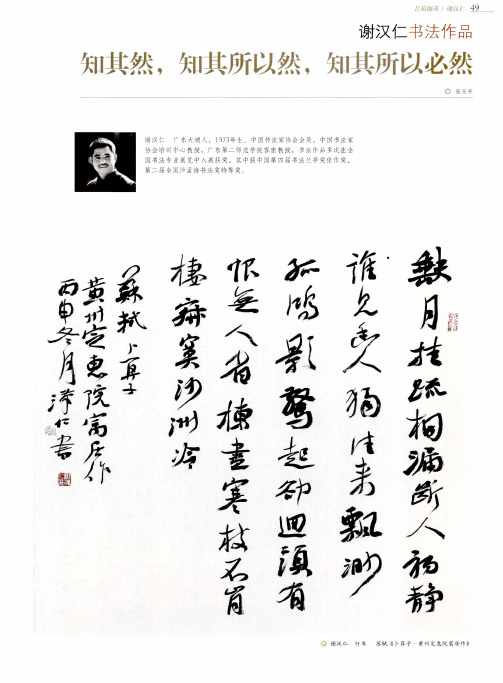 艺苑撷英 | 谢汉仁 49
谢汉仁书法作品
知其然，知其所以然，知其所以必然
◎ 张玉华
谢汉仁　广东大埔人，1973年生。中国书法家协会会员，中国书法家
协会培训中心教授，广东第二师范学院客座教授，书法作品多次在全
国书法专业展览中入展获奖，其中获中国第四届书法兰亭奖佳作奖，
第二届全国沙孟海书法奖特等奖。
缺月挂疏桐漏断人初静
谁见幽人独往来飘渺
孤鸿影惊起却回头有
恨无人省拣尽寒枝不肯
栖寂寞沙洲冷
苏轼卜算子
黄州定惠院寓居作
丙申冬月汉仁书
◎ 谢汉仁　行书　苏轼《卜算子·黄州定惠院寓居作》